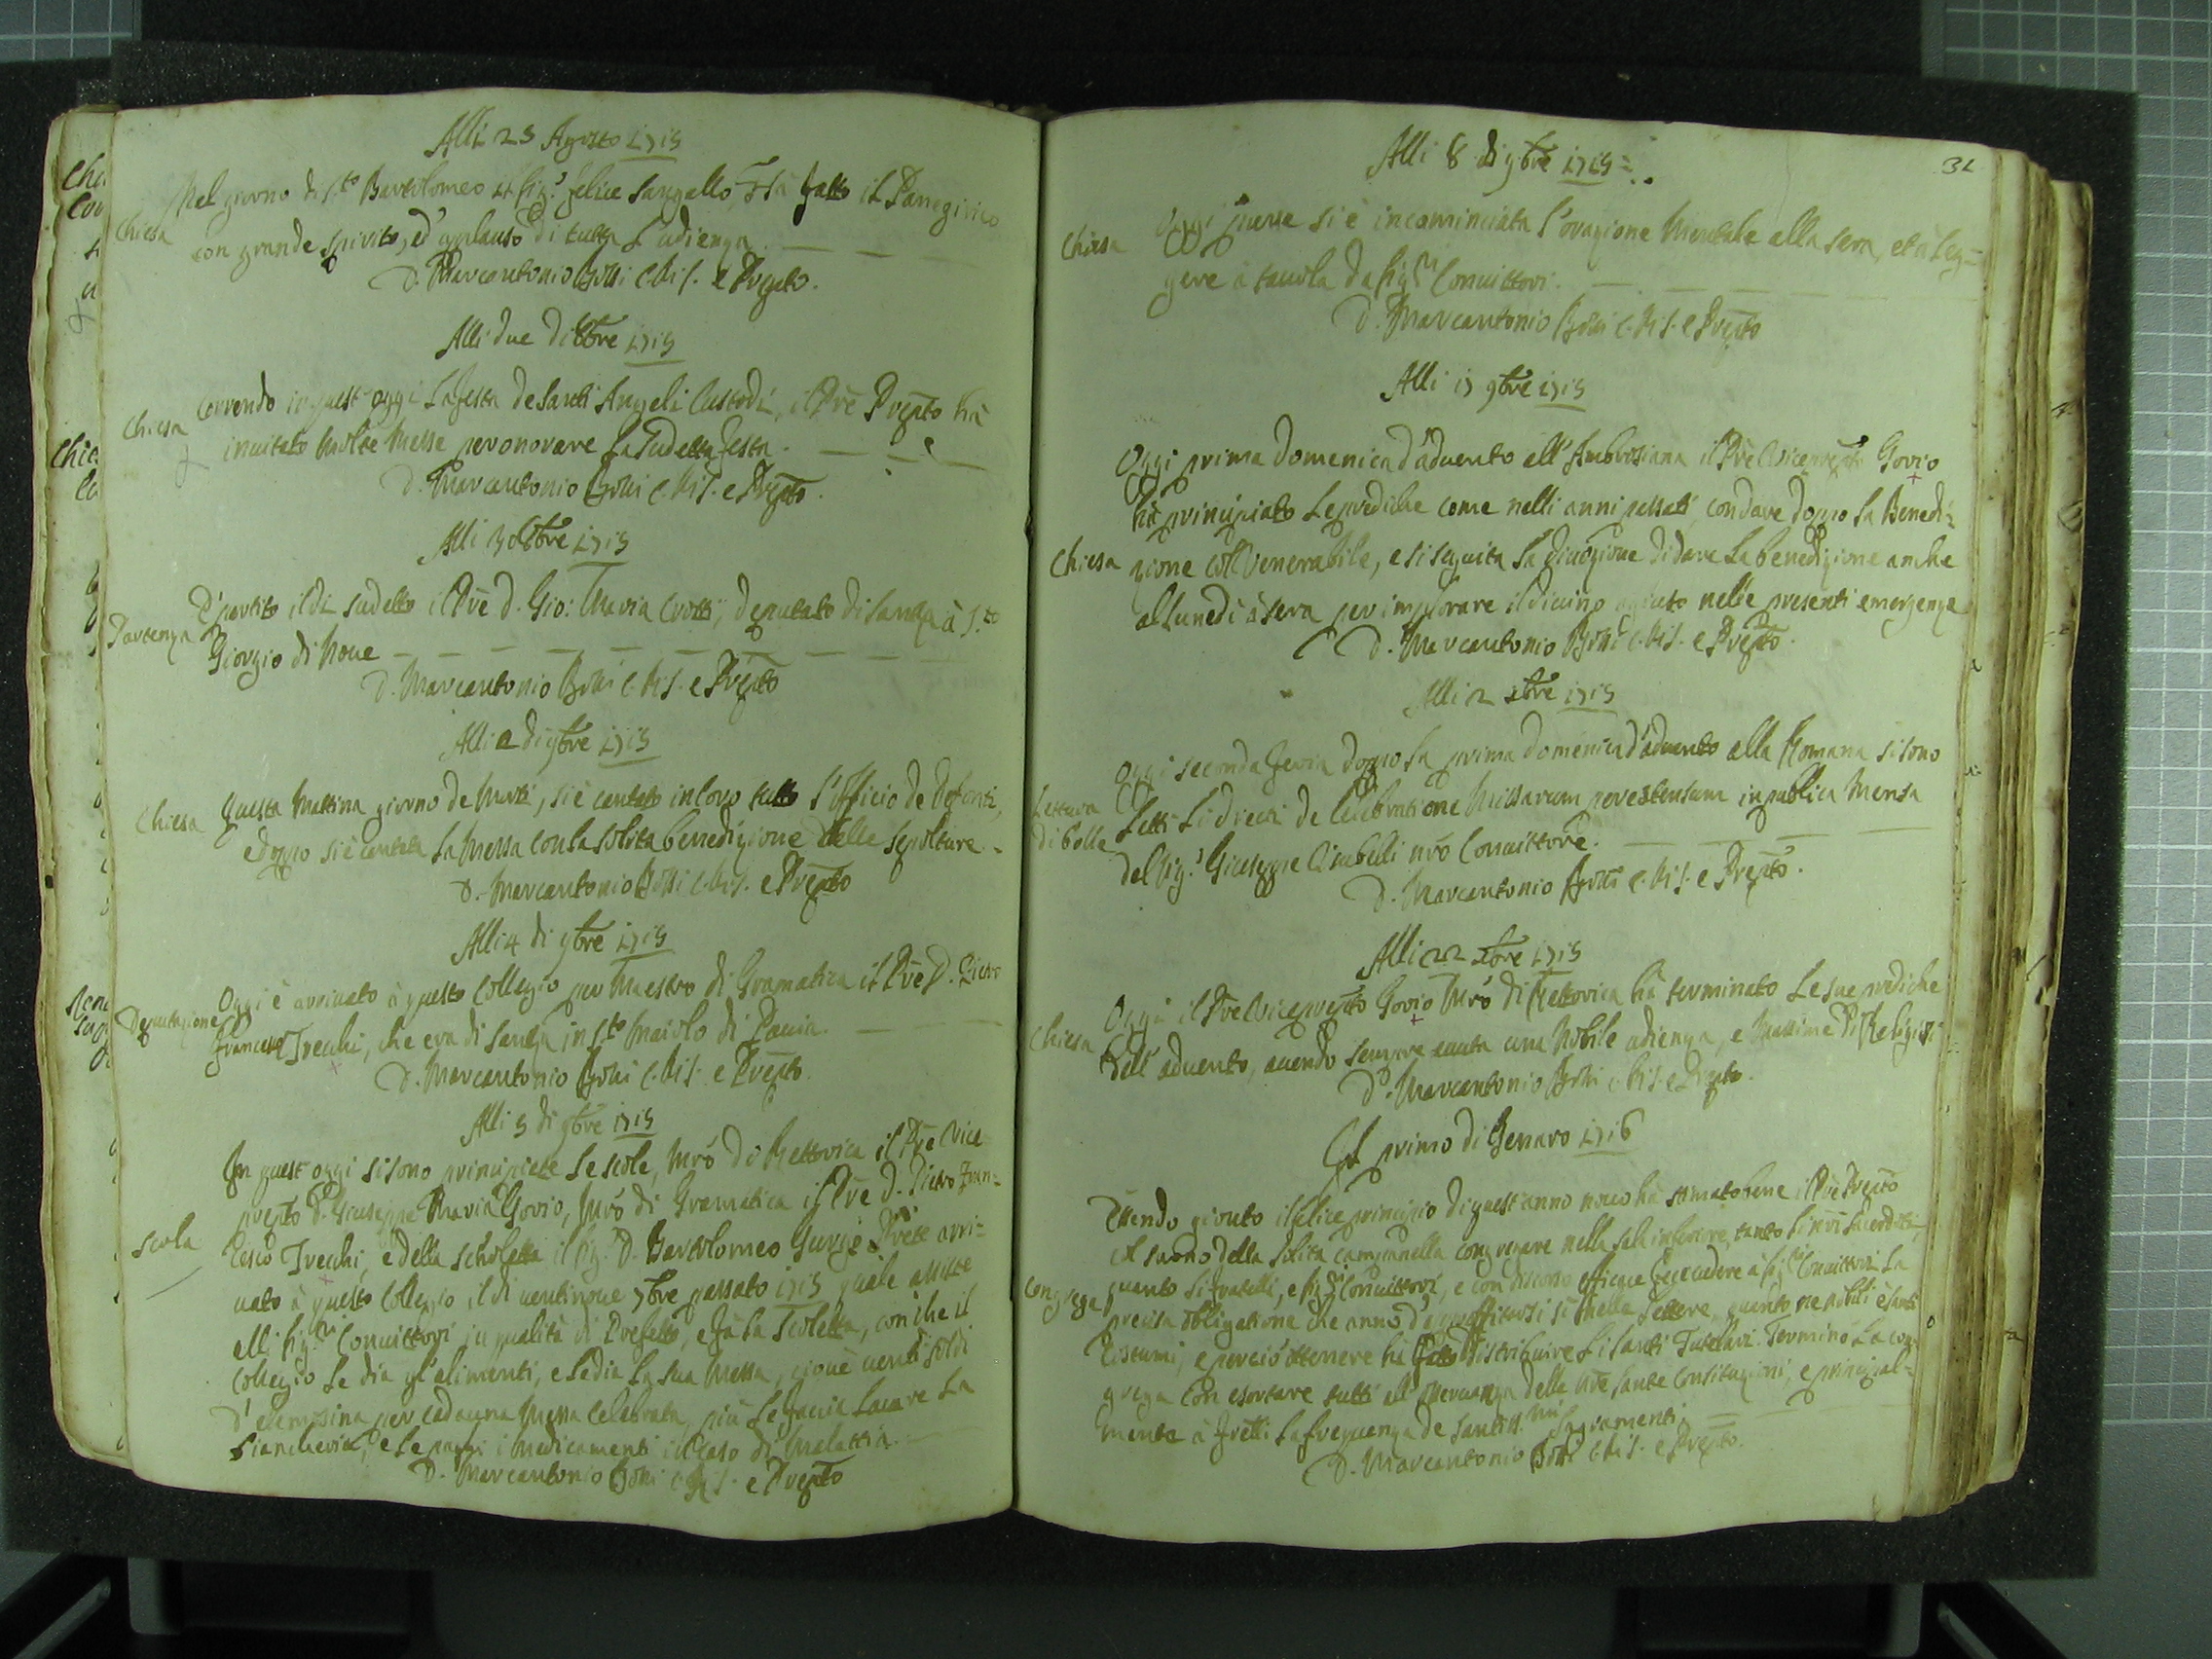 Alli 25 Agosto 1715
Chiesa
Nel giorno di S.to Bartolomeo il Sig.r Felice Sangallo hà fatto il Panegirico
con grande spirito, ed' applauso di tutta l'udienza.
D. Marcantonio C. R. S. e Prepto.
Alli due di 8bre 1715
Chiesa
Correndo in quest'oggi la festa de Santi Angeli Custodi, il Pre Prepto hà
inuitato molte Messe per onorare la sudetta festa.
D. Marcantonio C. R. S. e Prepto.
Alli 30 8bre 1715
Partenza
È partito il dì sudetto il Pre D. Gio: Maria Crotti, deputato di stanza à S.to
Giorgio di Noue
D. Marcantonio C. R. S. e Prepto
Alli 2 di 9bre 1715
Chiesa
Questa Mattina giorno de Morti, si è cantato in Coro tutto l'Officio de Defonti,
e doppo si è cantata la Messa con la solita benedizione delle sepolture.
D. Marcantonio C. R. S. e Prepto
Alli 4 di 9bre 1715
Deputazione
Oggi è arriuato à questo Collegio per Maestro di Gramatica il Pre D. Pietro
Francesco Trecchi, che era di stanza in S.to Maiolo di Pauia.
D. Marcantonio C. R. S. e Prepto
Alli 5 di 9bre 1715
Scola
In quest'oggi si sono principiate le scole, Mrô di Rettorica il Pre Vice
prepto D. Giuseppe Maria Gorio, Mrô di Gramatica il Pre D. Pietro Fran=
cesco Trecchi, e della scholetta il Sig.r D. Bartolomeo Prete arri=
uato à questo Collegio il dì uentinoue 7bre passato 1715 quale assiste
alli Sig.ri Conuittori in qualità di Prefetto, e fà la scoletta, con che il
Collegio le dia gl'alimenti, e le dia la sua Messa, ciouè uenti soldi
d'elemosina per cadauna Messa celebrata, più le faccia lauare la
biancheria, e le paghi i medicamenti in caso di malattia.
D. Marcantonio C. R. S. e Prepto
31
Alli 8 di 9bre 1715
Chiesa
Oggi pure si è incominciata l'orazione Mentale alla sera, et à leg=
gere à tauola da Sig.ri Conuittori.
D. Marcantonio C. R. S. e Prepto
Alli 17 9bre 1715
Chiesa
Oggi prima Domenica d'aduento all'Ambrosiana il Pre Viceprepto Gorio
hà principiato le prediche come nelli anni passati, con dare doppo la Benedi=
zione coll Venerabile, e si seguita la diuozione di dare la benedizione anche
al lunedì à sera per implorare il diuino agiuto nelle presenti emergenze
D. Marcantonio C. R. S. e Prepto.
Alli 2 Xbre 1715
Lettura
di bolle
Oggi seconda feria doppo la prima domenica d'aduento alla Romana si sono
letti li decreti de Celebratione Missarum per extensum in publica Mensa
dal Sig.r Giuseppe nrô Conuittore.
D. Marcantonio C. R. S. e Prepto.
Alli 22 Xbre 1715
Chiesa
Oggi il Pre Viceprepto Gorio Mrô di Rettorica hà terminato le sue prediche
dell'aduento, auendo sempre auuta una Nobile udienza, e massime di Religiosi
D. Marcantonio C. R. S. e Prepto.
Il primo di Genaro 1716
Congrega
Essendo gionto il felice principio di quest'anno nouo hà stimato bene il Pre Prepto
al suono della solita campanella congregare nella sala inferiore, tanto li nrî Sacerdoti,
quanto li fratelli, e Sig.ri Conuittori, e con discorso efficace fece uedere à Sig.ri Conuittori la
precisa obligatione che anno d'approfittarsi sì nelle lettere, quanto ne nobili e santi
costumi, e perciò ottenere hà fatto distribuire li santi Tutelari. Terminò la con=
grega con esortare tutti all'osseruanza delle nrê sante Constituzioni, e principal=
mente à Fretti la frequenza de Santiss.mi Sagramenti.
D. Marcantonio C. R. S. e Prepto.